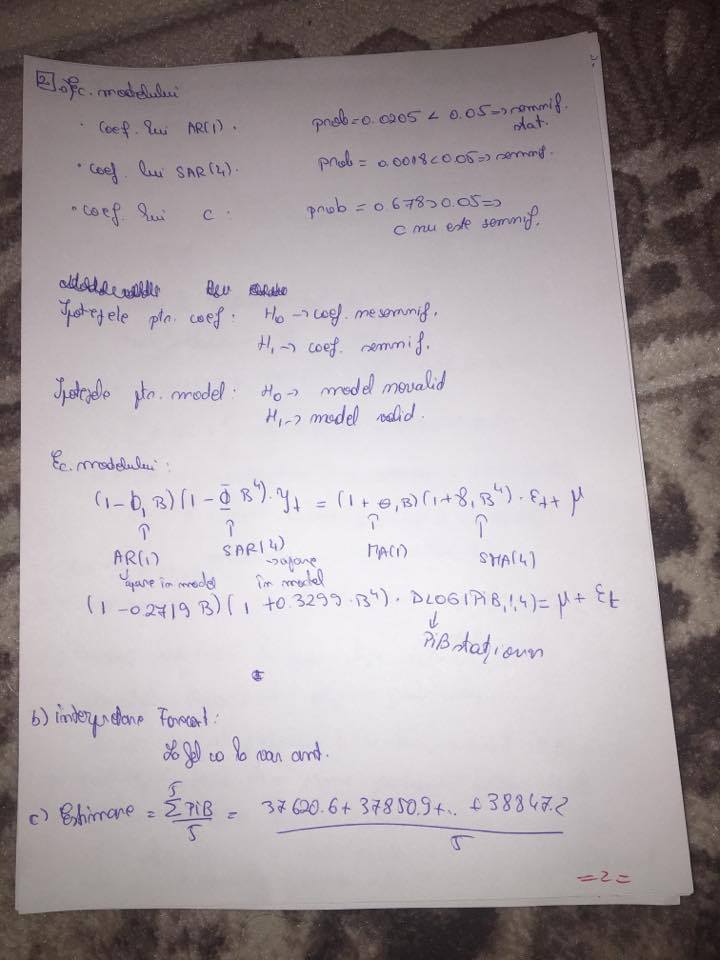 2 a) Ec. modelului
• Coef. lui AR(1). prob = 0.0205 < 0.05 => semnif. stat.
• coef. lui SAR(4). prob = 0.0018 < 0.05 => semnif.
• coef. lui C: prob = 0.678 > 0.05 =>
C nu este semnif.
Ipotezele ptr. coef: H₀ → coef. nesemnif.
H₁ → coef. semnif.
Ipotezele ptr. model: H₀ → model novalid
H₁ → model valid.
Ec. modelului:
(1-Φ₁B)(1-Φ B⁴)·y_t = (1+θ₁B)(1+γ₁B⁴)·ε_t + μ
↑ ↑ ↑ ↑
AR(1) SAR(4) MA(1) SMA(4)
↳apare in model →apare în model
(1-0.2719 B)(1+0.3299·B⁴)·DLOG(PiB,1,4) = μ + ε_t
↓
PiB staționar
b) interpretare Forecast:
La fel ca la var. ant.
c) Estimare = 5ΣPiB/5 = 37620.6+37850.9+...+38847.2 / 5
=2=